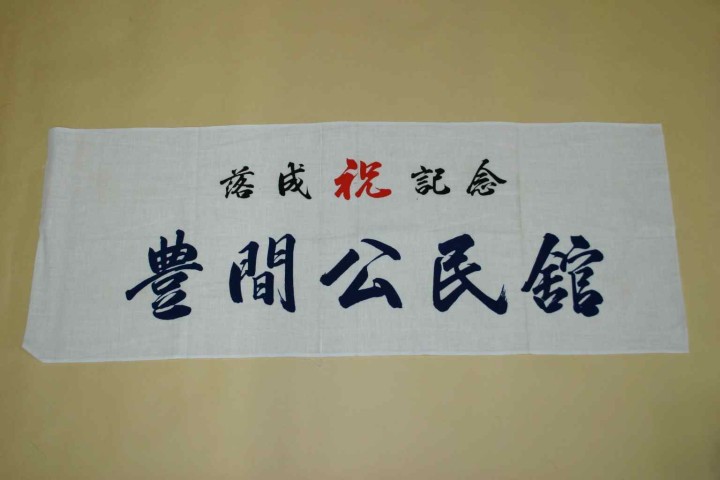 落成祝記念
豊間公民舘